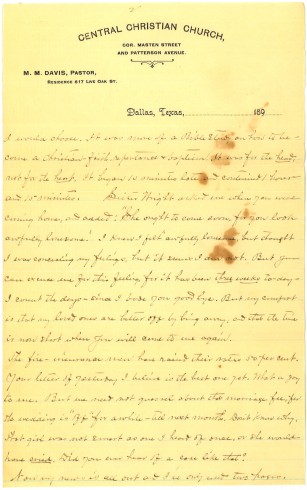 2
CENTRAL CHRISTIAN CHURCH,
COR. MASTEN STREET
AND PATTERSON AVENUE.
M. M. DAVIS, PASTOR,
RESIDENCE 617 LIVE OAK ST.
Dallas, Texas, 189
I would choose. It was more of a Bible Study on How to be-
come a Christian - faith, repentance & baptism. It was for the head,
not for the heart. It began 10 minutes late and continued 1 hour
and 10 minutes. Sister Wright asked me when you were
coming home, and added: "She ought to come soon, for you look
awfully lonesome." I know I felt awfully lonesome, but thought
I was concealing my feelings, but it seems I am not. But you
can excuse me for this feeling for it has been three weeks to-day -
I count the days - since I bade you good bye. But my comfort
is that my loved ones are better off by being away, and that the time
is now short when you will come to me again.
The fire-insurance men have raised their rates 50 per cent.
Your letter of yesterday I believe is the best one yet. What a joy
to me. But we need not quarrel about that marriage fee, for
the wedding is "off" for a while - till next month. Don't know why.
That girl was not as smart as one I heard of once, or she would
have cried. Did you ever hear of a case like this?
Now my news is all out and I've only used two pages.